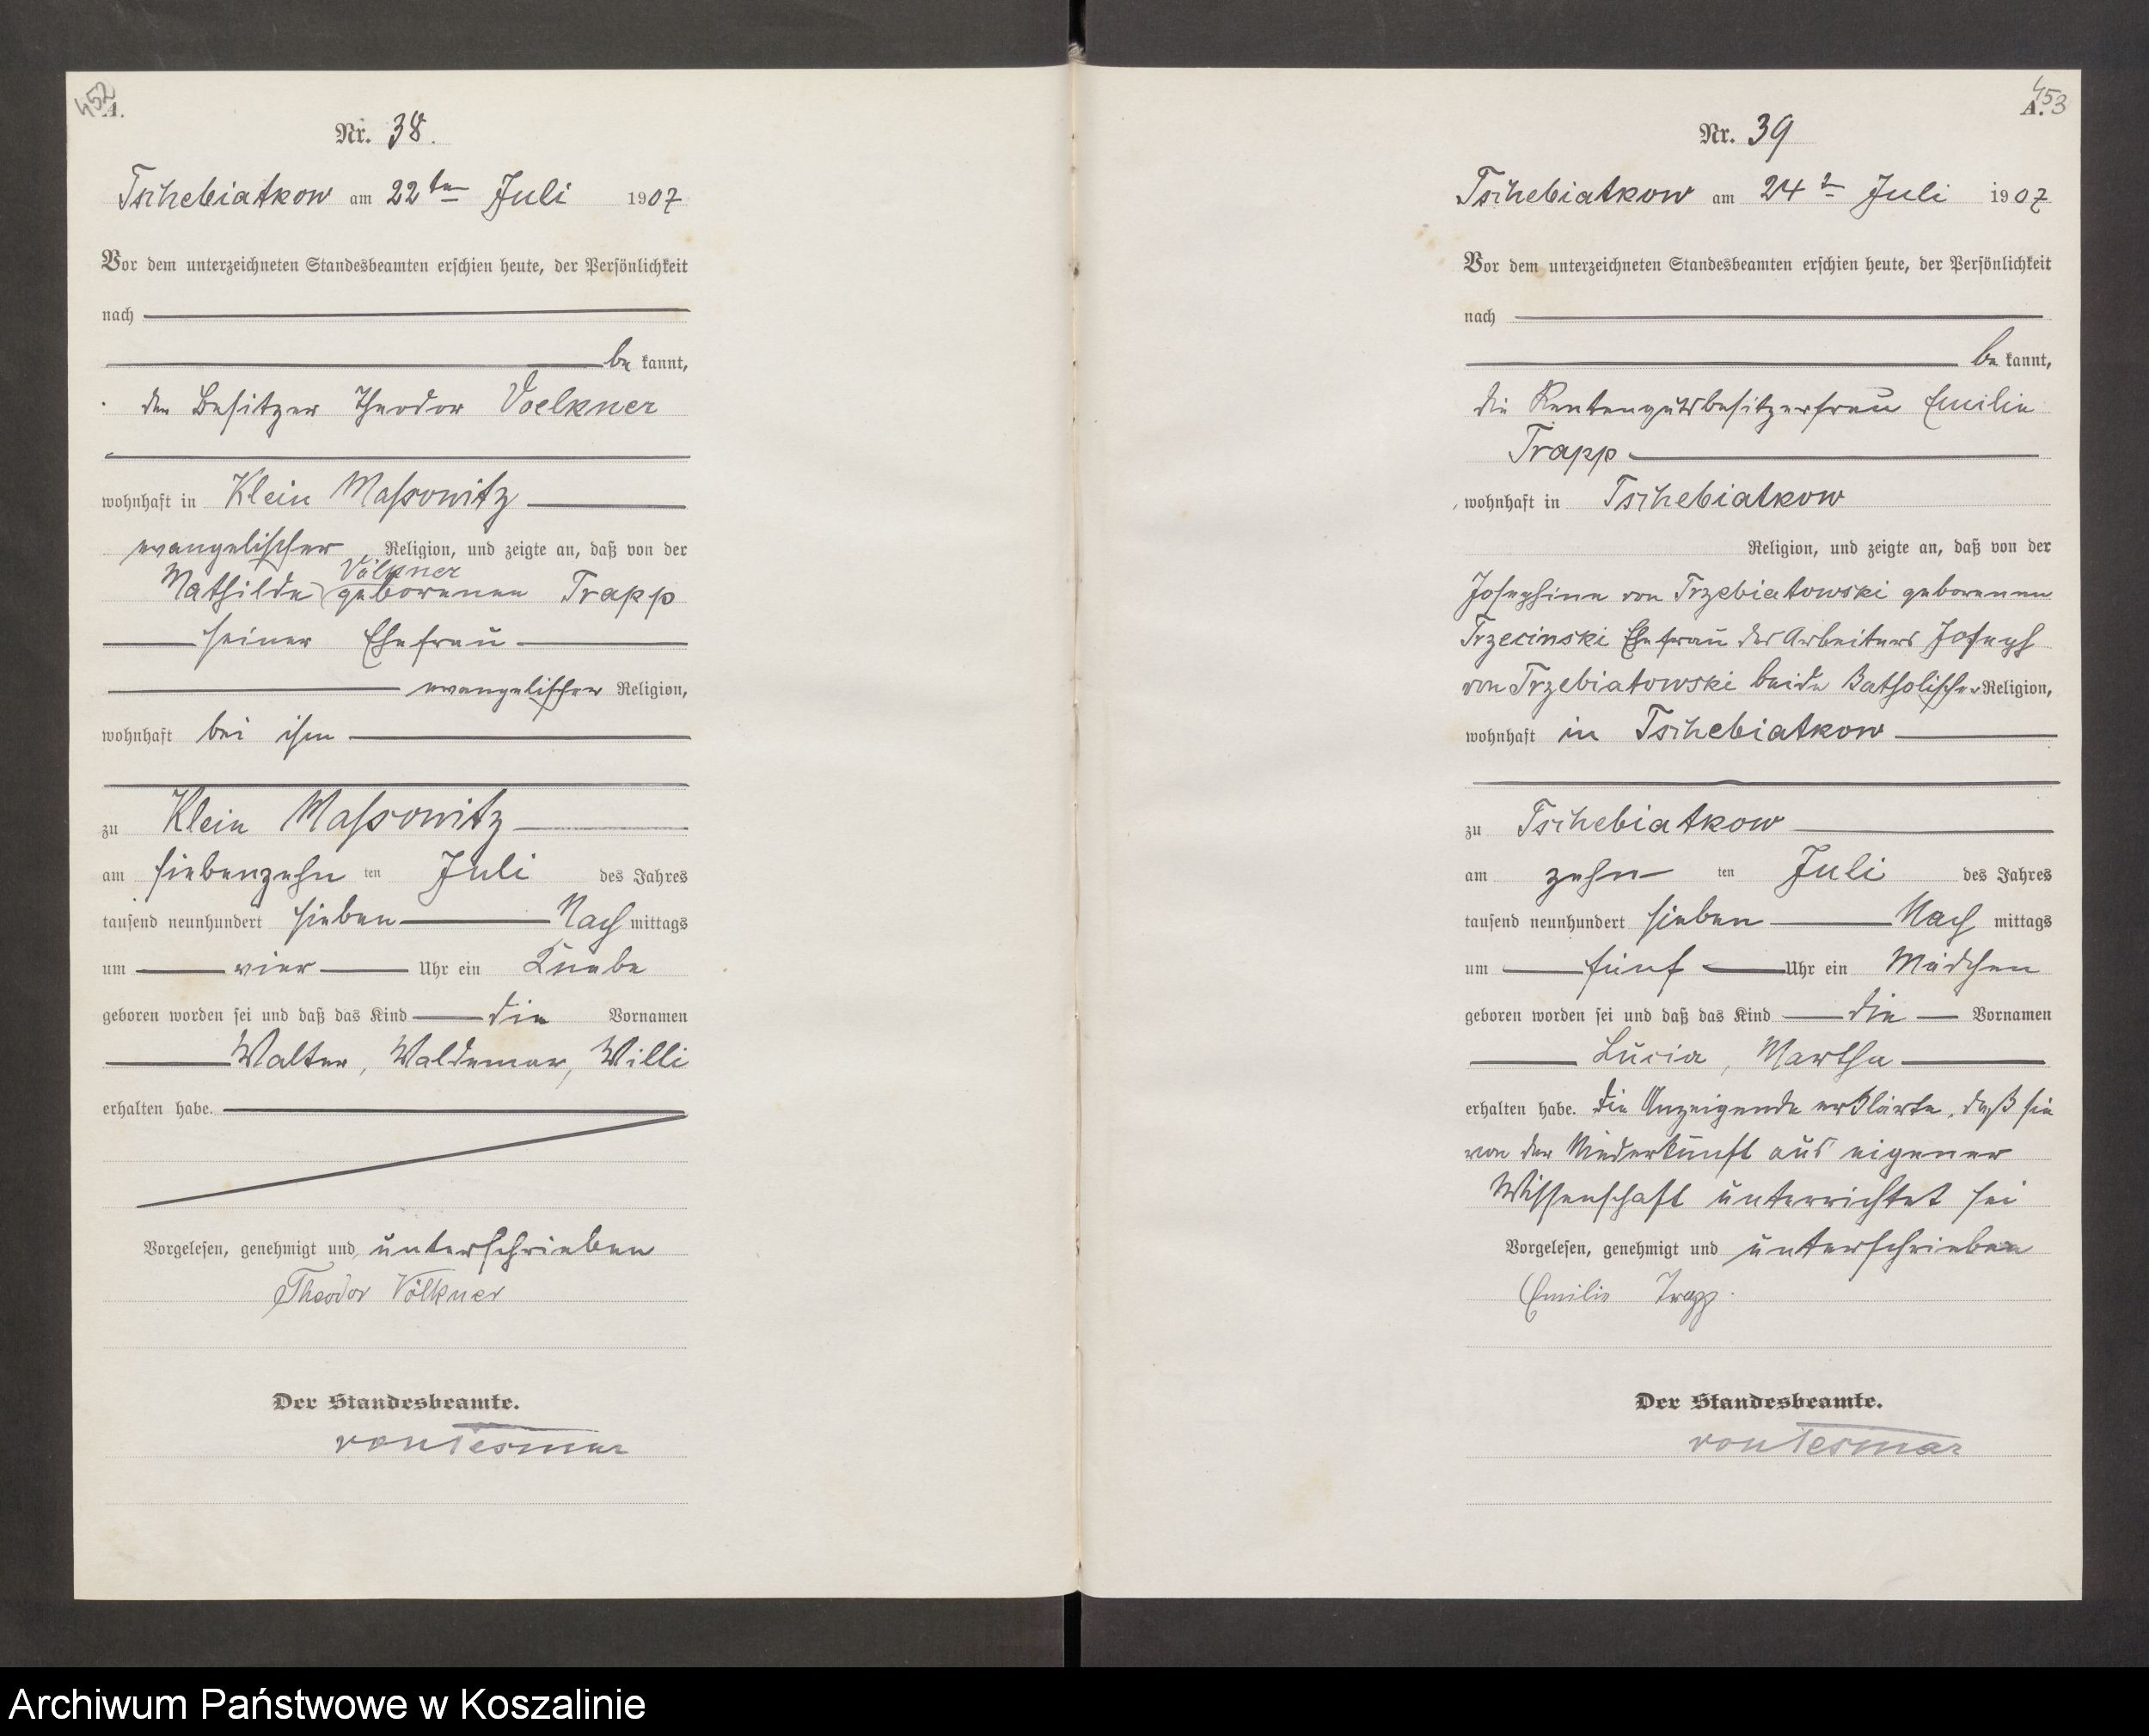 452
A.
Nr. 38.
Tschebiatkow am 22ten Juli 1907
Vor dem unterzeichneten Standesbeamten erschien heute, der Persönlichkeit
nach
be kannt,
der Besitzer Theodor Voelkner
wohnhaft in Klein Massowitz
evangelischer Religion, und zeigte an, daß von der
Völkner
Mathilde geborenen Trapp
seiner Ehefrau
evangelischer Religion,
wohnhaft bei ihm
zu Klein Massowitz
am siebenzehn ten Juli des Jahres
tausend neunhundert sieben Nach mittags
um vier Uhr ein Knabe
geboren worden sei und daß das Kind die Vornamen
Walter, Waldemar, Willi
erhalten habe.
Vorgelesen, genehmigt und unterschrieben
Theodor Völkner
Der Standesbeamte.
von Tesmar
453
A.
Nr. 39
Tschebiatkow am 24 Juli 1907
Vor dem unterzeichneten Standesbeamten erschien heute, der Persönlichkeit
nach
be kannt,
die Rentengutsbesitzerfrau Emilie
Trapp
wohnhaft in Tschebiatkow
Religion, und zeigte an, daß von der
Josephine von Trzebiatowski geborenen
Trzecinski Ehefrau des Arbeiters Joseph
von Trzebiatowski beide katholischer Religion,
wohnhaft in Tschebiatkow
zu Tschebiatkow
am zehn ten Juli des Jahres
tausend neunhundert sieben Nach mittags
um fünf Uhr ein Mädchen
geboren worden sei und daß das Kind die Vornamen
Lucia, Martha
erhalten habe. Die Anzeigende erklärte, daß sie
von der Niederkunft aus eigener
Wissenschaft unterrichtet sei
Vorgelesen, genehmigt und unterschrieben
Emilie Trapp.
Der Standesbeamte.
von Tesmar
Archiwum Państwowe w Koszalinie